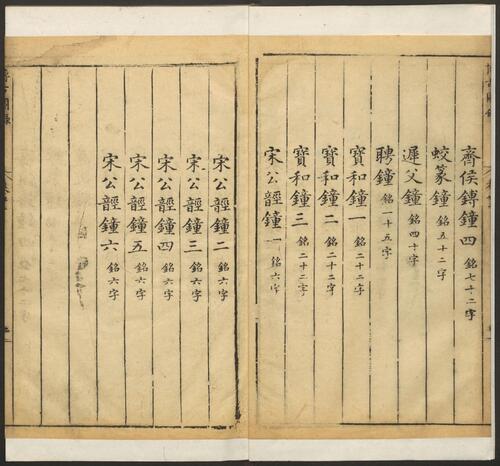 齊侯鎛鐘四 銘七十二字
蛟篆鐘 銘五十二字
遲父鐘 銘四十字
聘鐘 銘一十五字
寶和鐘一 銘二十二字
寶和鐘二 銘二十二字
寶和鐘三 銘二十二字
宋公䪫鐘一 銘六字
宋公䪫鐘二 銘六字
宋公䪫鐘三 銘六字
宋公䪫鐘四 銘六字
宋公䪫鐘五 銘六字
宋公䪫鐘六 銘六字